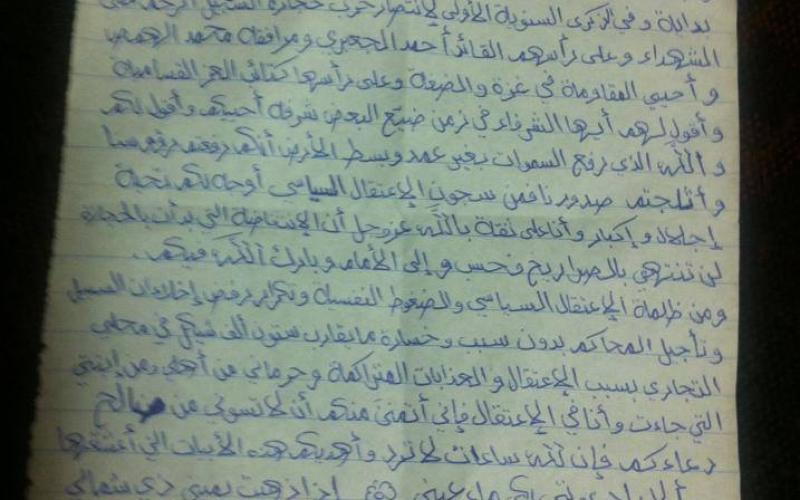 بداية و في الذكرى السنوية الأولى لانتصار حرب حجارة السجيل
الشهداء و على رأسهم القائد أحمد الجعبري و مرافقه محمد الهمص
و أحيي المقاومة في غزة و الضفة و على رأسها كتائب العز القسامية
و أقول لهم أيها الشرفاء في زمن ضيّع البعض شرفه أحييكم و أقول لكم
و الله الذي رفع السموات بغير عمد و بسط الأرض أنكم رفعتم رؤوسنا
و أثلجتم صدورنا فمن سجون الإعتقال السياسي أوجه لكم تحية
إجلال و إكبار و أنا على ثقة بالله عز وجل أن الإنتفاضة التي بدأت بالحجارة
لن تنتهي بالصواريخ و حسب و إلى الأمام و بارك الله فيكم.
و من ظلمة الإعتقال السياسي و الضغوط النفسية و تكرار رفض إخلاءات السبيل
و تأجيل المحاكم بدون سبب و خسارة ما يقارب ستون ألف شيكل في محلي
التجاري بسبب الإعتقال و العذابات المتراكمة و حرماني من أهلي و من إبنتي
التي جاءت و أنا في الإعتقال فإني أتمنى منكم أن لا تنسوني من صالح
دعاءكم فإن لله ساعات لا ترد و أهديكم هذه الأبيات التي أعشقها
إذا ذهبت يميني ذي شمالي